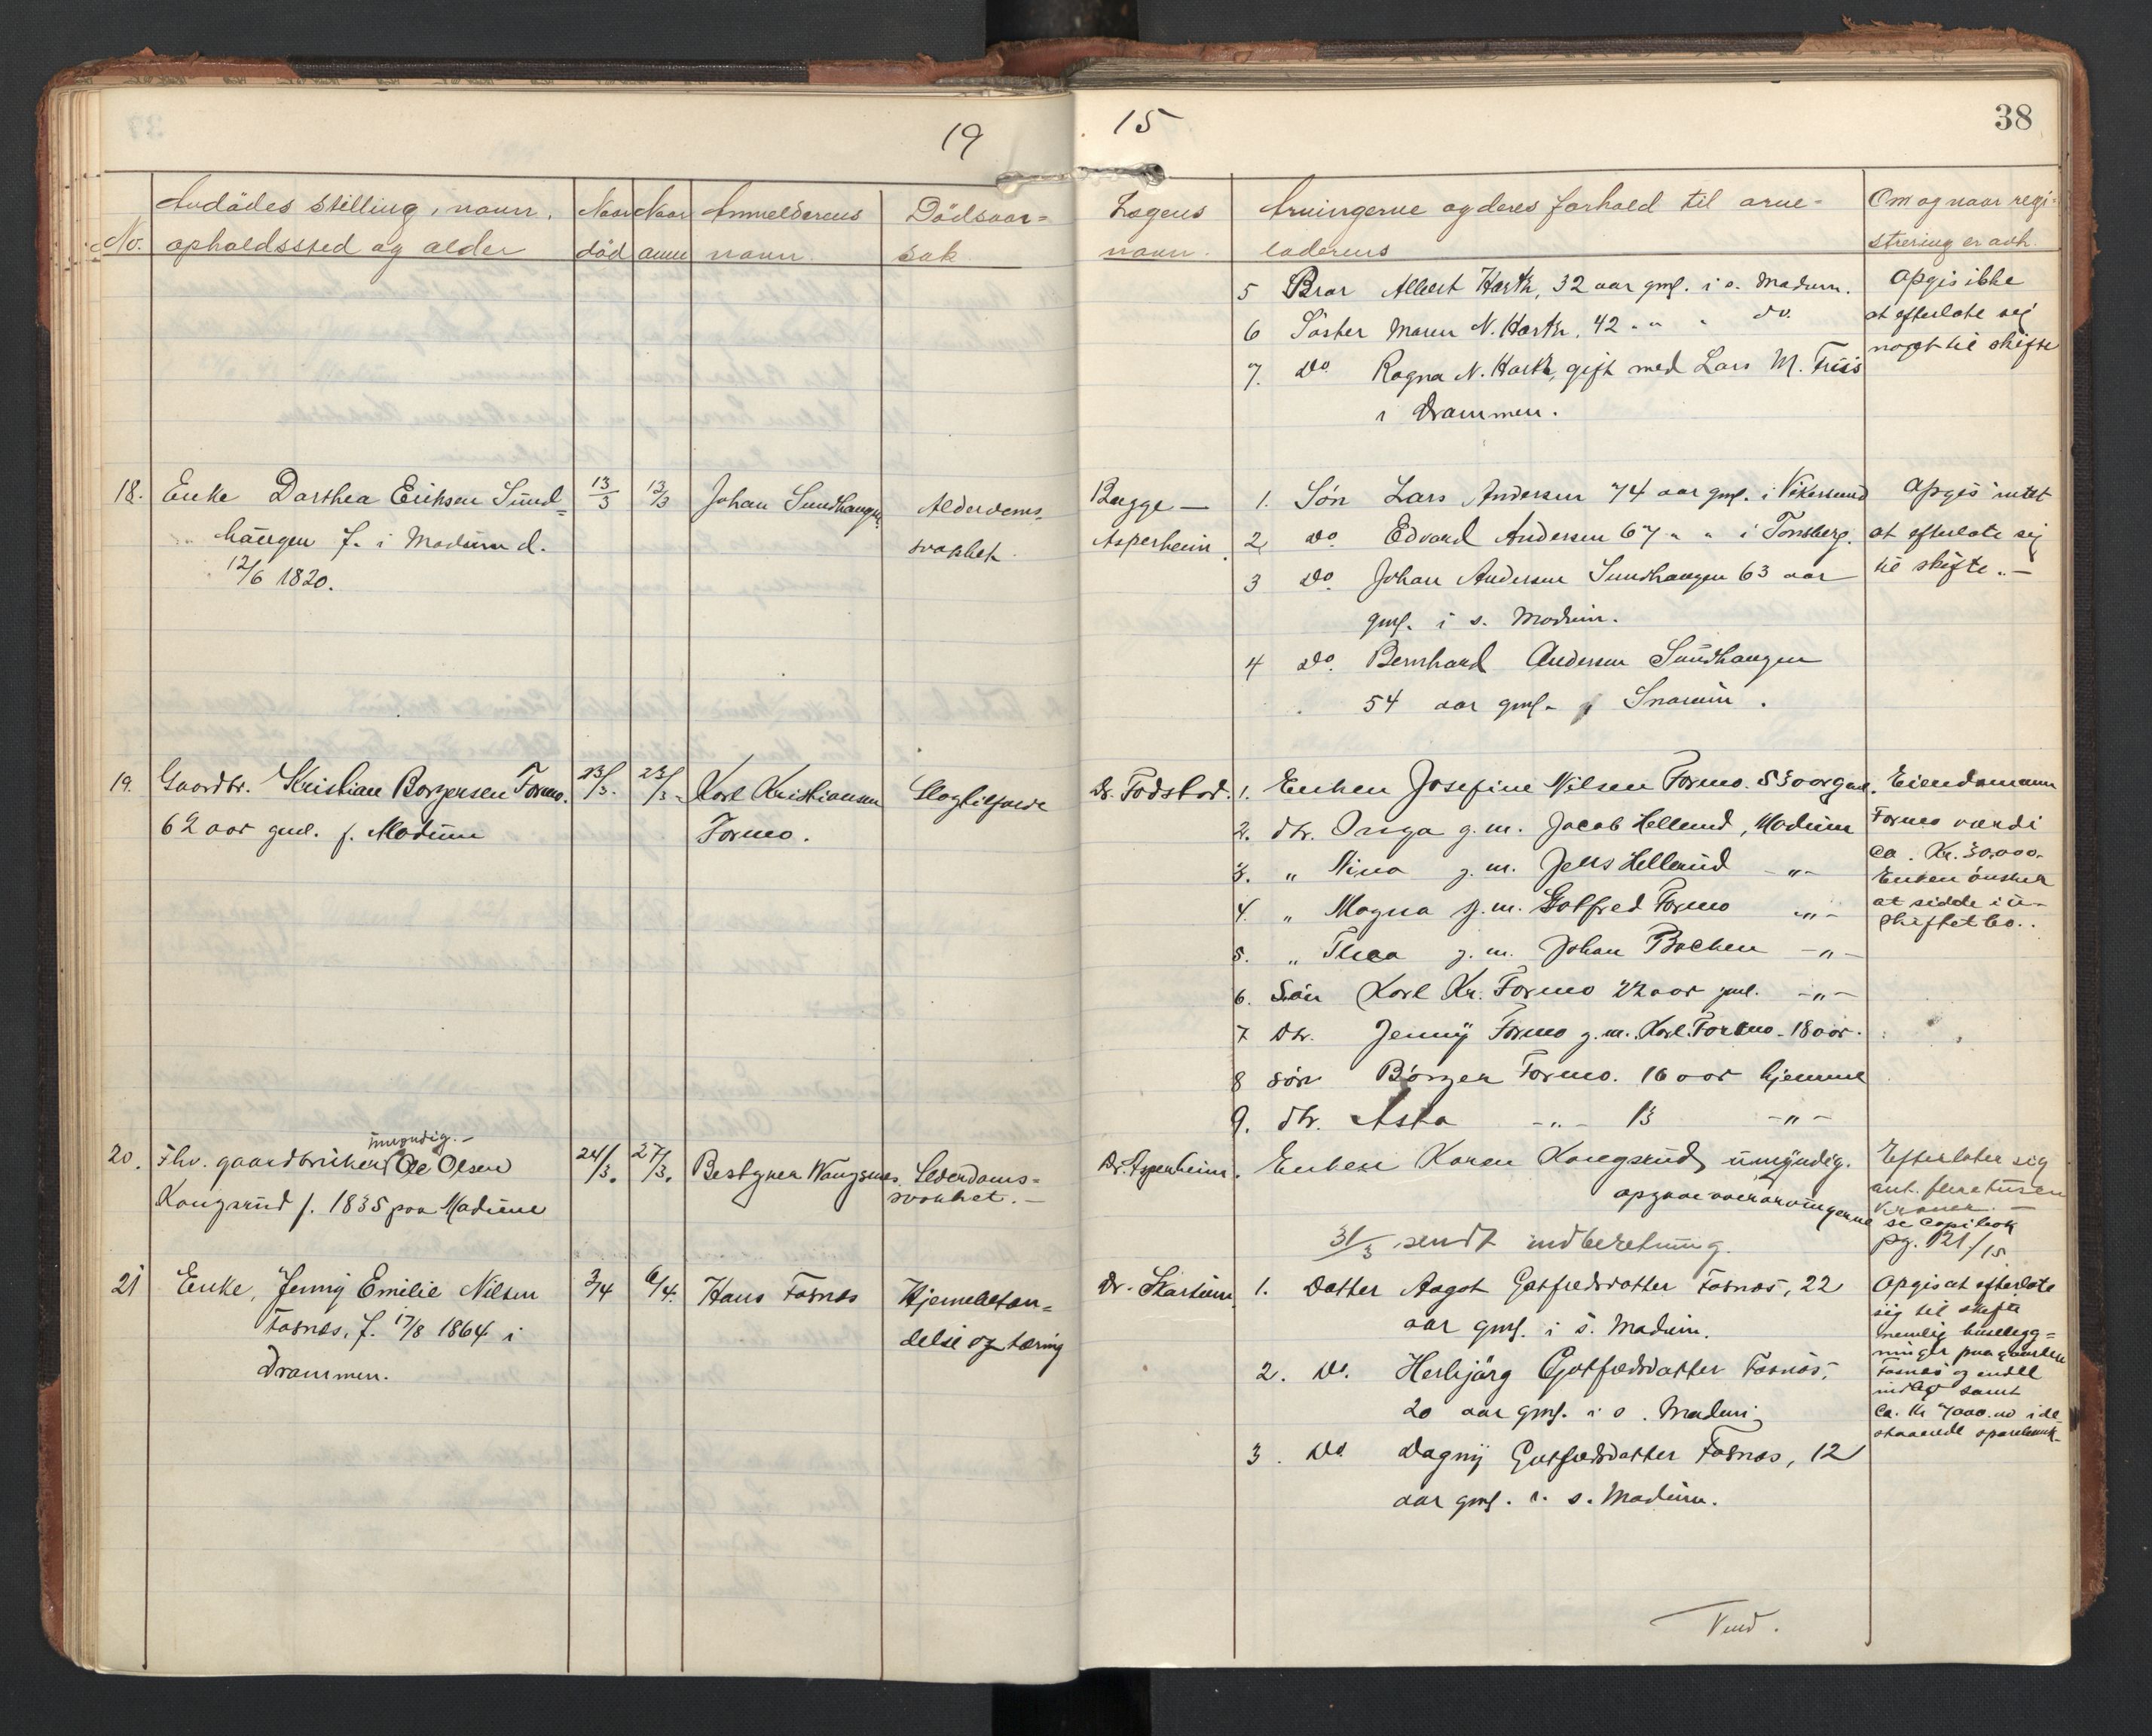 19
15
38
No.
Avdödes stilling, navn,
opholdssted og alder
Naar
död
Naar
anm
Anmelderens
navn.
Dödsaar=
sak
Lægens
navn.
Arvingerne og deres forhold til arve=
laderens
Om og naar regi=
strering er avh.
5 Bror Albert Hartz, 32 aar gml. i s. Modum.
6 Söster Maren N. Hartz, 42 " " " do.
7. Do Ragna N. Hartz, gift med Lars M. Friis
i Drammen.
Opgis ikke
at efterlate sig
noget til skifte
18. Enke Dorthea Eriksen Sund=
haugen f. i Modum d.
12/6 1820.
13/3
13/3
Johan Sundhaugen
Alderdoms=
svaghet.
Bugge —
Asperheim.
1. Søn Lars Andersen 74 aar gml. i Vikersund
2 Do. Edvard Andersen 67 " " i Tønsberg.
3 Do. Johan Andersen Sundhaugen 63 aar
gml. i s. Modum.
4 Do. Bernhard Andersen Sundhaugen
54 aar gml. Snarum.
Opgis intet
at efterlate sig
til skifte. —
19. Gaardbr. Kristian Borgersen Formo.
62 aar gml. f. Modum
23/3.
23/3.
Karl Kristiansen
Formo.
Slagtilfælde
Dr. Fodstad.
1. Enken Josefine Nilsen Formo. 53 aar gml.
2. dtr. g. m. Jacob Hellerud, Modum
3. " Nina g. m. Jens Hellerud - " -
4. " Magna g. m. Gotfred Formo - " -
5. " Thea g. m. Johan - " -
6. Søn Karl Kr. Formo 22 aar gml. - " -
7 Dtr. Jenny Formo g. m. Karl Formo - 18 aar.
8 søn Börger Formo. 16 aar hjemme
9. dtr. Asta - " - 13 - " -
Eiendommen
Formo værdi
ca. Kr. 30,000.
Enken önsker
at sidde i u-
skiftet bo..
umyndig. —
20. Fhv. gaardbruker Ole Olsen
Kongsrud f. 1835 paa Modum
24/3.
27/3.
Bestyrer Vangsnes.
Alderdoms=
svakhet. —
Dr. Asperheim.
Enken Karen Kongsrud, umyndig.
opgaae over arvingerne
31/3 sendt indberetning.
Efterlater sig
ant. flere tusen
kroner. —
se copibok
pg. 121/15
21 Enke, Jenny Emilie Nilsen
Fosnes, f. 17/8 1864 i
Drammen.
3/4
6/4.
Hans Fosnes
Hjernebetæn=
delse og tæring
Dr. Skartum.
1. Datter Aagot Gotfredsdatter Fosnæs, 22
aar gml. i s. Modum.
2. Do. Herbjörg Gotfredsdatter Fosnæs,
20 aar gml. i s. Modum
3. Do Dagny Gotfredsdatter Fosnæs, 12
aar gml. i. s. Modum.
Opgis at efterlate
sig til skifte
nemlig husebygg=
ninger paa gaarden
Fosnes og endel
indbo samt
ca. Kr 7000.00 i de
staaende
Vend.